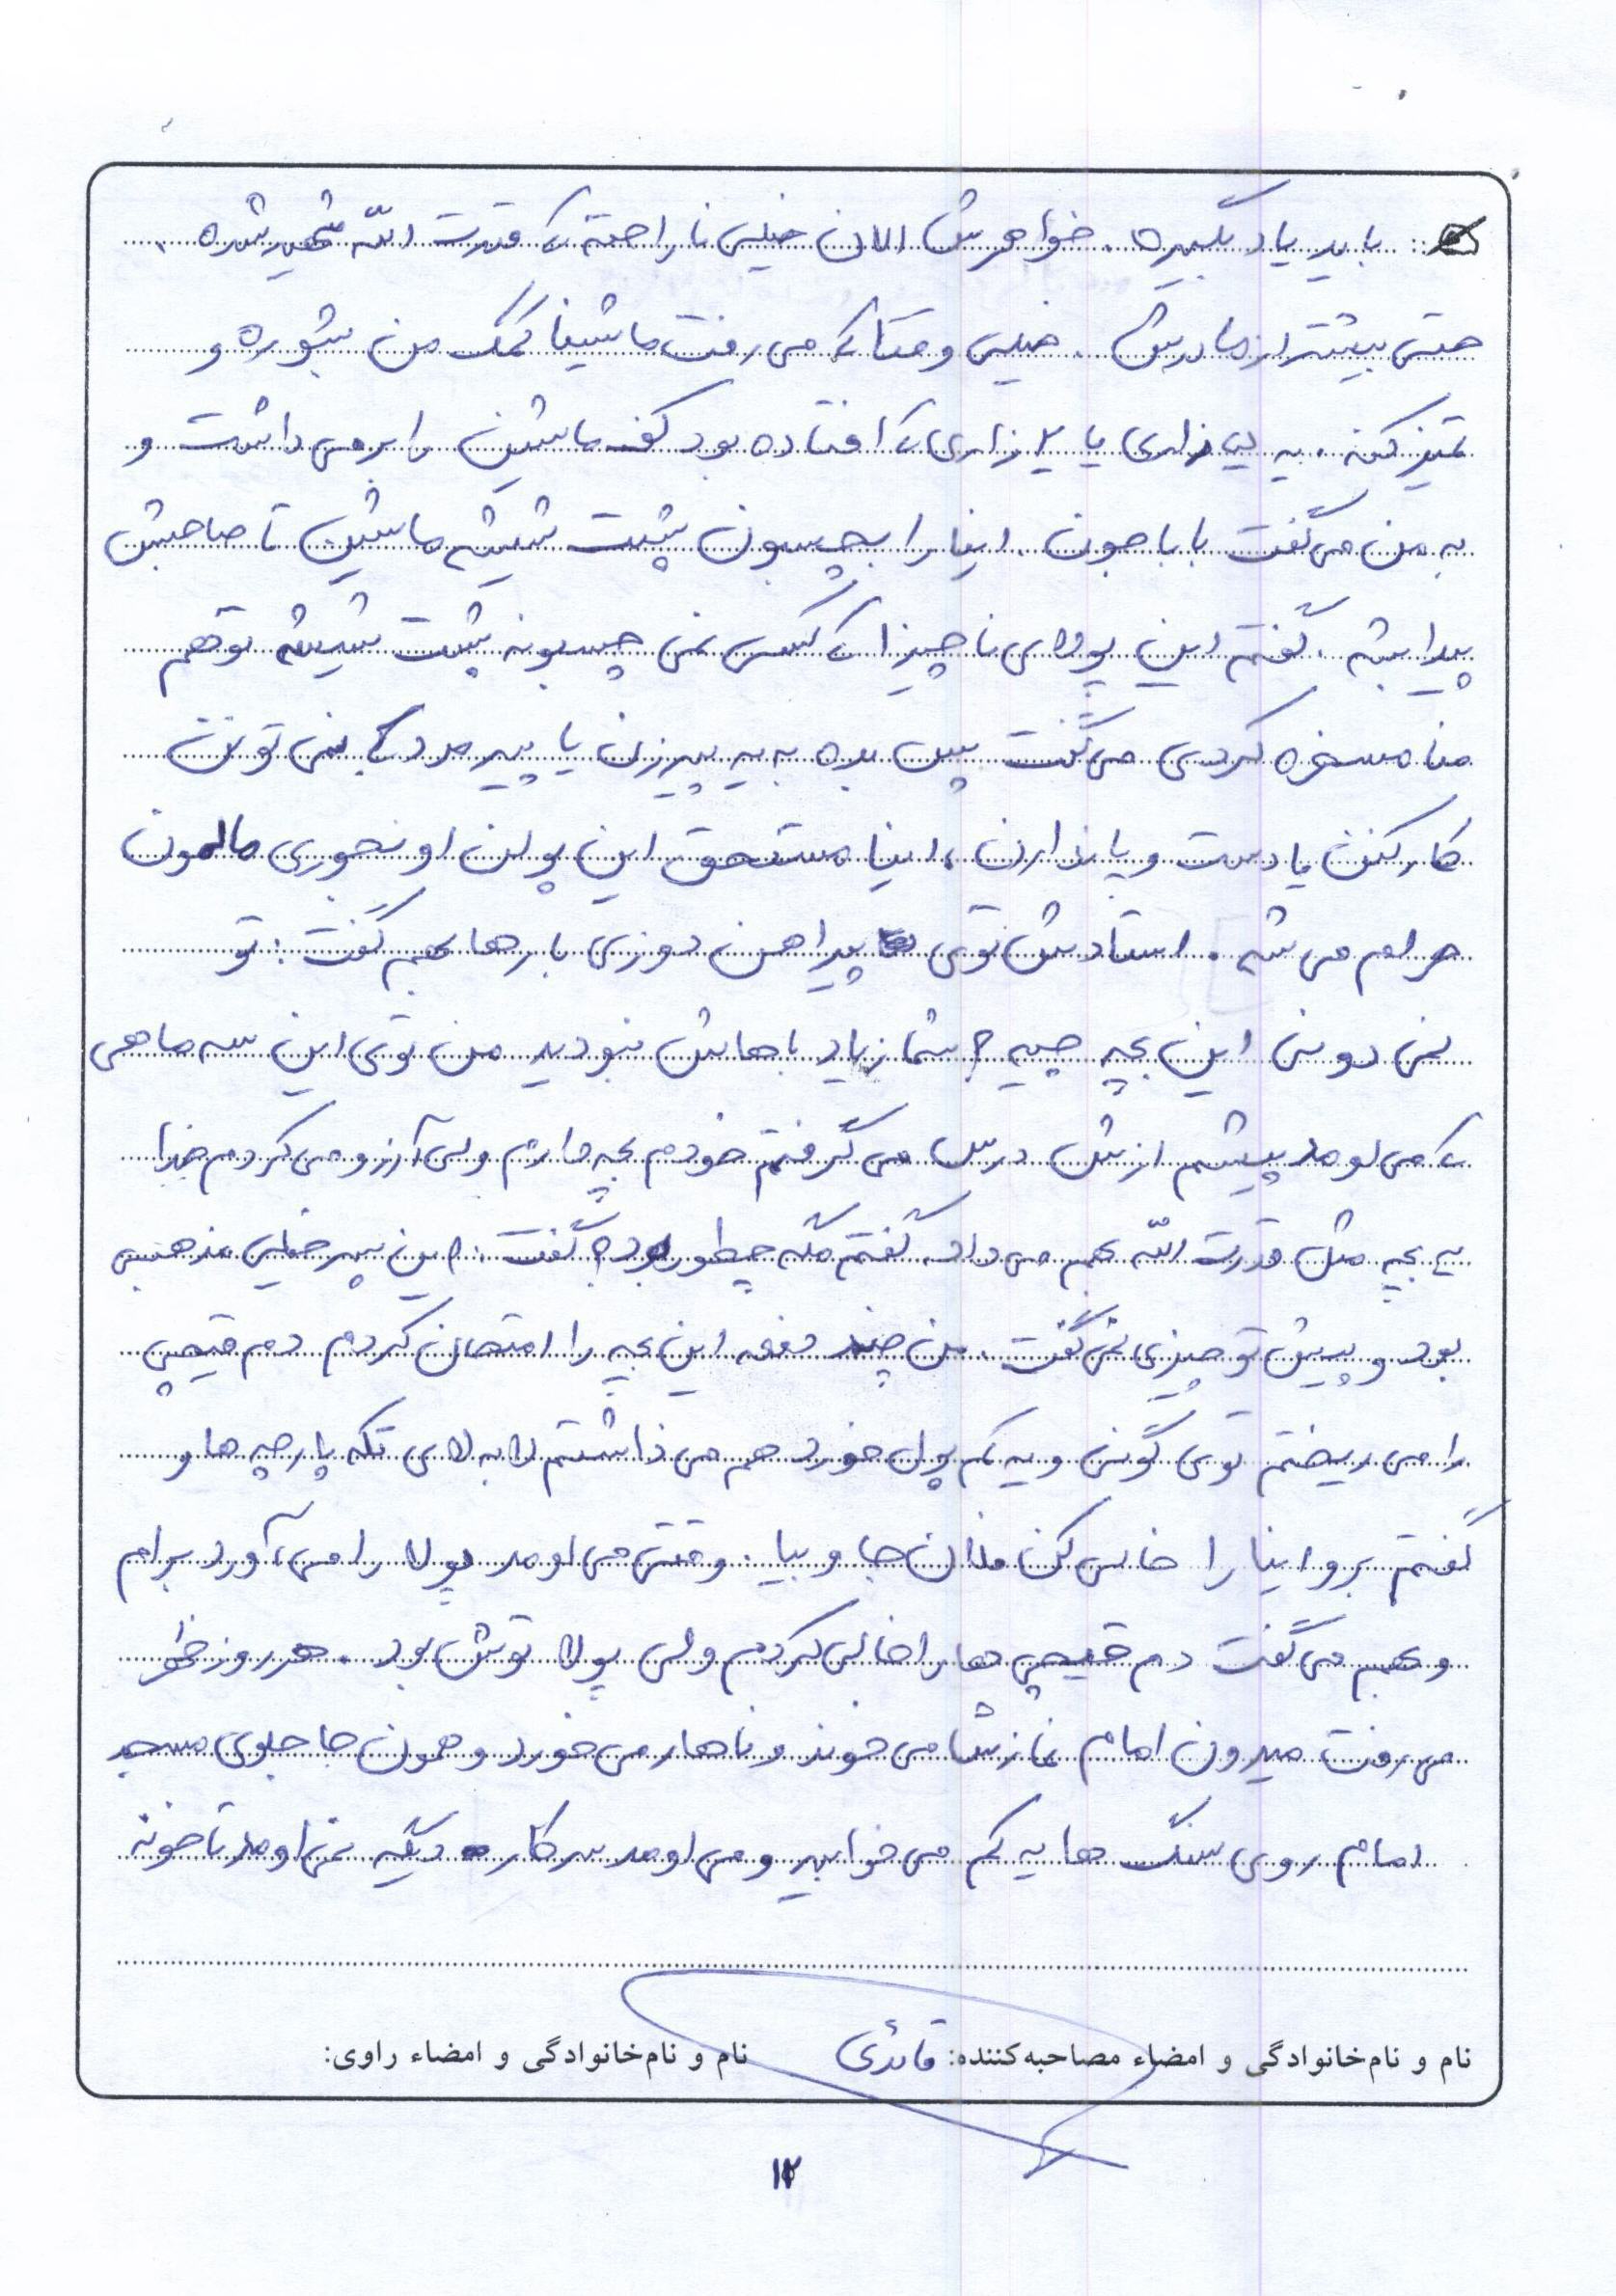 باید یاد بگیره. خواهرش الان خیلی ناراحته که قدرت الله شهید شده.
حتی بیشتر از مادرش. خیلی وقتا که می رفت ماشینا کمک من بشوره و
تمیز کنه. یه یی زاری یا یی زاری که افتاده بود کف ماشین را برمی داشت و
به من می گفت باباجون. اینا را بچسبون پشت شیشه ماشین تا صاحبش
پیدا بشه. گفتم این پولای ناچیزا که کسی نمی چسبونه پشت شیشه تو هم
منا مسخره کردی می گفت پس بده به یه پیرزن یا پیرمرد که نمی تونن
کار کنن یا دست و پا ندارن، اینا مستحق این پولن اونجوری مالمون
حرام می شه. استادش توی پیراهن دوزی بارها بهم گفت: تو
نمی دونی این بچه چیه؟ شما زیاد باهاش نبودید من توی این سه ماهی
که می اومد پیشم ازش درس می گرفتم خودم بچه دارم ولی آرزو می کردم خدا
یه بچه مثل قدرت الله بهم می داد. گفتم مگه چطور بود؟ گفت: این پسر خیلی مذهبی
بود و پیش تو چیزی نمی گفت. من چند دفعه این بچه را امتحان کردم دم قیچی
را می ریختم توی گونی و یه کم پول خورد هم می ذاشتم لا به لای تکه پارچه ها و
گفتم برو اینا را خالی کن فلان جا و بیا. وقتی می اومد پولا را می آورد برام
و بهم می گفت دم قیچی ها را خالی کردم ولی پولا توش بود. هر روز ظهر
می رفت میدون امام نمازشا می خوند و ناهار می خورد و همون جا جلوی مسجد
امام روی سنگ ها یه کم می خوابید و می اومد سر کار دیگه نمی اومد تا خونه
نام و نام‌خانوادگی و امضاء مصاحبه‌کننده: قائدی نام و نام‌خانوادگی و امضاء راوی:
۱۲